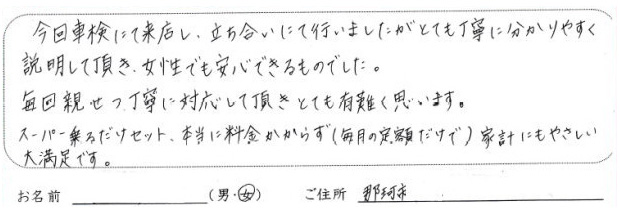 今回車検にて来店し、立ち合いにて行いましたがとても丁寧に分かりやすく
説明して頂き、女性でも安心できるものでした。
毎回親せつ、丁寧に対応して頂きとても有難く思います。
スーパー乗るだけセット、本当に料金かからず(毎月の定額だけで)家計にもやさしい
大満足です。
お名前 (男・女) ご住所 那珂市